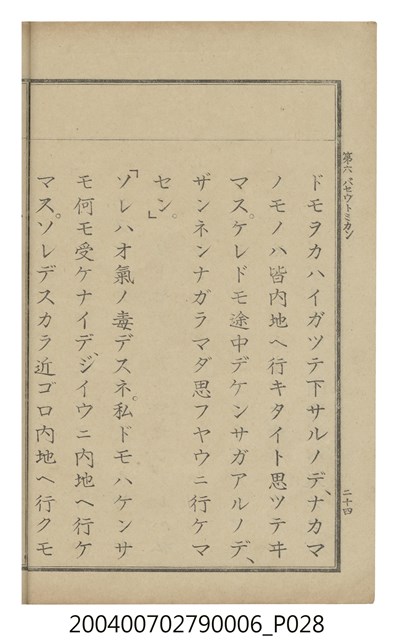 第六 バセウトミカン
二十四
ドモヲカハイガツテ下サルノデ、ナカマ
ノモノハ皆内地ヘ行キタイト思ツテヰ
マス。ケレドモ途中デケンサガアルノデ、
ザンネンナガラマダ思フヤウニ行ケマ
セン。」
「ソレハオ氣ノ毒デスネ。私ドモハケンサ
モ何モ受ケナイデ、ジイウニ内地ヘ行ケ
マス。ソレデスカラ近ゴロ內地ヘ行クモ
200400702790006_P028